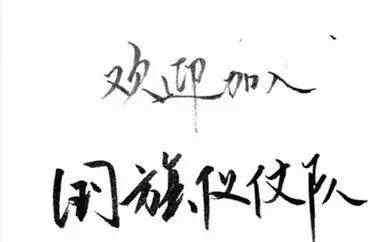 欢迎加入
国旗仪仗队